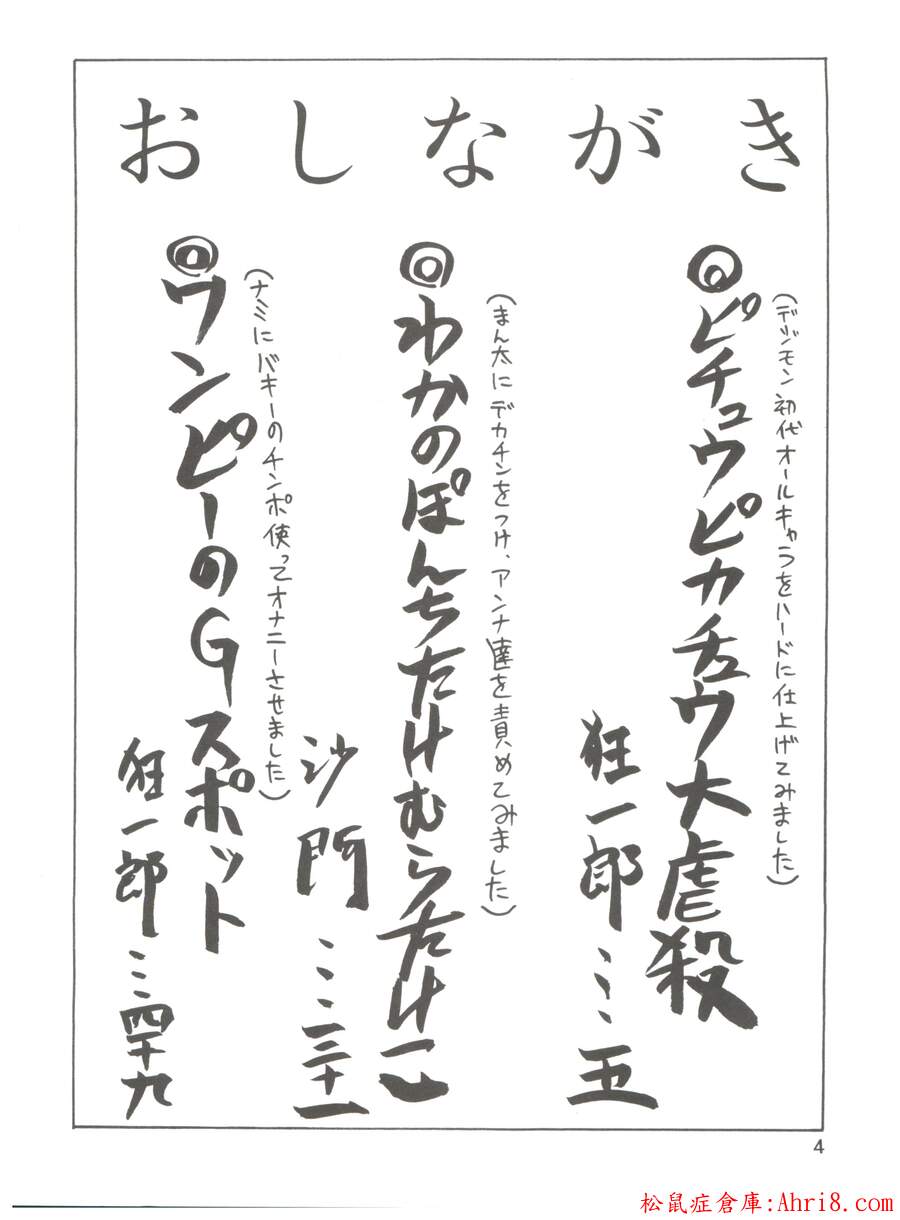 おしながき
◎ピチュウピカチュウ大虐殺
(デジモン初代オールキャラをハードに仕上げてみました)
狂一郎……五
◎わかのぽんちたけむらたけ一心
(まん太にデカチンをつけ、アンナ達を責めてみました)
沙門……三十一
◎ワンピーのGスポット
(ナミにバギーのチンポ使ってオナニーさせました)
狂一郎……四十九
4
松鼠症倉庫:Ahri8.com